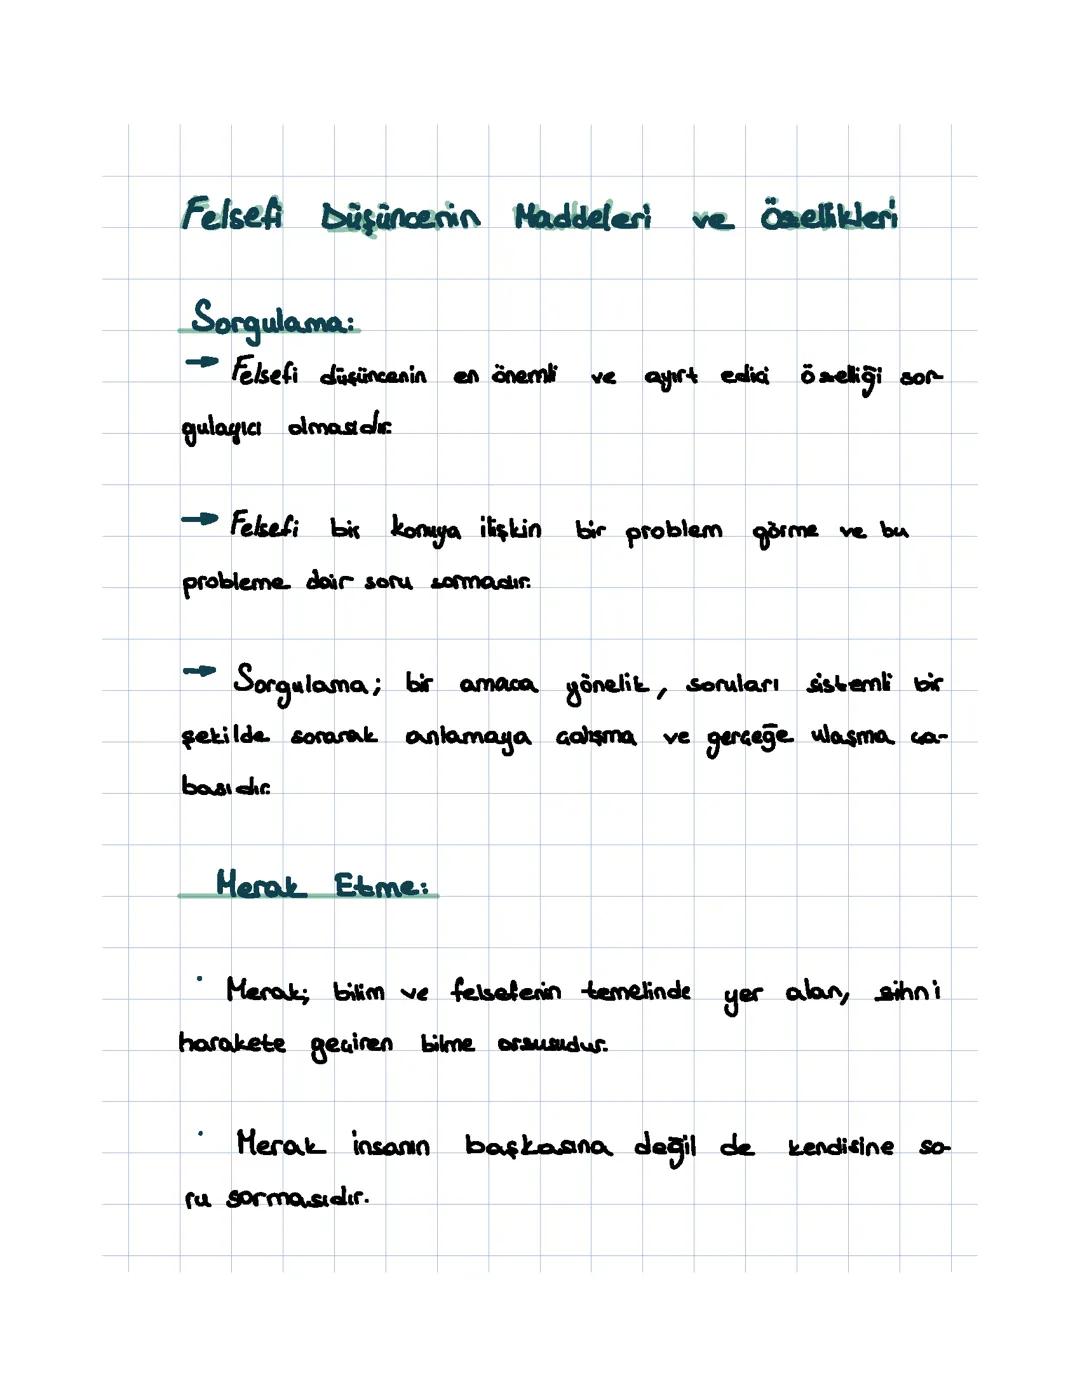 Felsefi Düşüncenin Maddeleri ve Özellikleri
Sorgulama:
→ Felsefi düşüncenin en önemli ve ayırt edici özelliği sor-
gulayıcı olmasıdır.
→ Felsefi bir konuya ilişkin bir problem görme ve bu
probleme dair soru sormadır.
→ Sorgulama; bir amaca yönelik, soruları sistemli bir
şekilde sorarak anlamaya çalışma ve gerçeğe ulaşma ça-
basıdır.
Merak Etme:
· Merak; bilim ve felsefenin temelinde yer alan, zihni
harakete geçiren bilme arzusudur.
· Merak insanın başkasına değil de kendisine so-
ru sormasıdır.